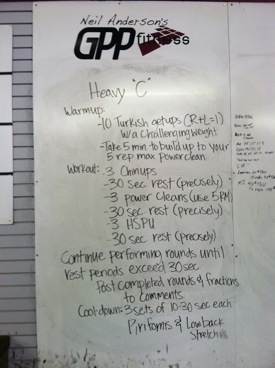 Neil Anderson's
GPP fitness
Heavy "C"
Warmup:
-10 Turkish getups (R+L=1)
w/a challenging weight
-Take 5 min to build up to your
5 rep max power clean
Workout: -3 Chinups
-30 sec rest (precisely)
-3 power cleans (use 5RM)
-30 sec rest (precisely)
-3 HSPU
30 sec rest (precisely)
Continue performing rounds until
rest periods exceed 30 sec
Post completed rounds & fractions
to comments.
Cool-down: 3 sets of 10-30 sec each
Piriformis & low back
Stretch